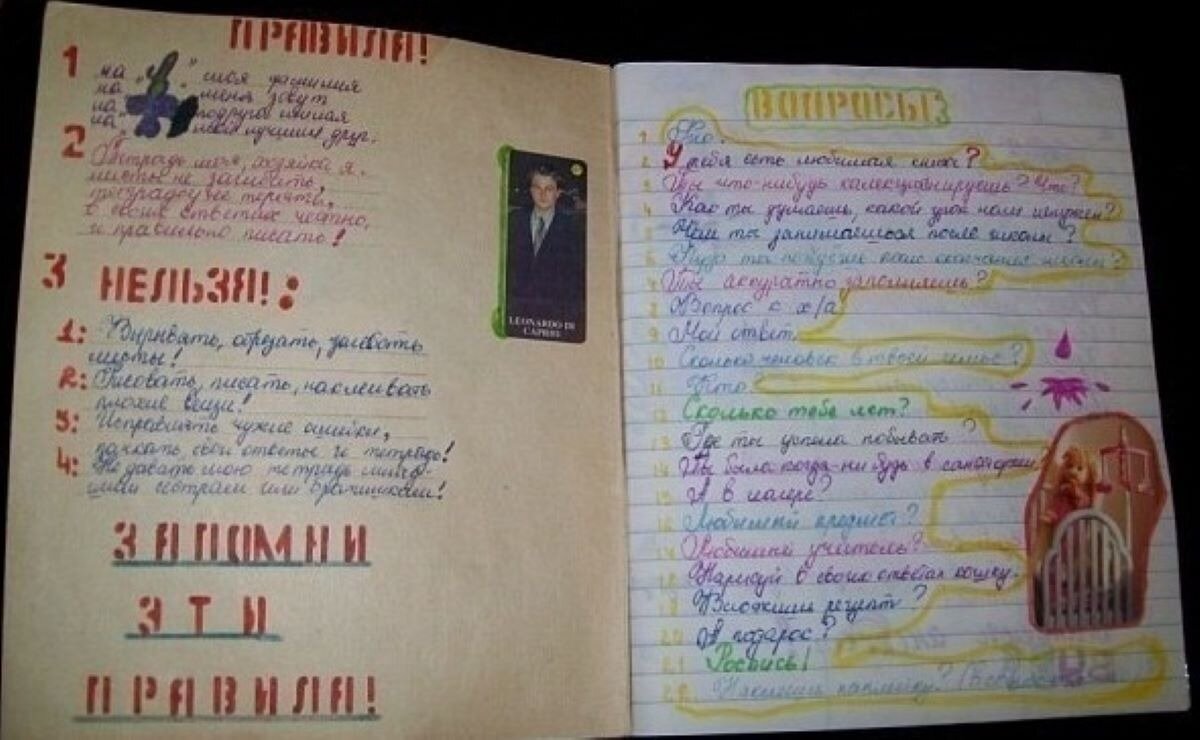 ПРАВИЛА!
1 на " " моя фамилия
на меня зовут
на подруга
на мой лучший друг.
2 Тетрадь моя, хозяйка я.
листы не загибать,
тетрадку не терять,
в своих ответах честно,
и правильно писать!
3 НЕЛЬЗЯ!:
1: Вырывать, обрезать, загибать
листы!
2: Рисовать, писать, наклеивать
плохие вещи!
3: Исправлять чужие ошибки,
свои ответы тетрадь!
4: Не давать мою тетрадь
сёстрам или братишкам!
ЗАПОМНИ
ЭТИ
ПРАВИЛА!
LEONARDO DI
CAPRIO
ВОПРОСЫ
1.
2. У тебя есть любимая книга?
3 Ты что-нибудь калекцианируешь? Что?
4 Как ты думаешь, какой урок нам не нужен?
5 Чем ты занимаешься после школы?
6. Куда ты пойдёшь после окончания школы?
7 Ты аккуратно заполняешь?
8 Вопрос к х/а
9 Мой ответ.
10 Сколько человек в твоей семье?
11 Кто.
12 Сколько тебе лет?
13 Где ты успела побывать?
14 Ты была когда-нибудь в санатории?
15 А в лагере?
16 Любимый предмет?
17 Любимый учитель?
18 Нарисуй в своих ответах кошку.
19 рецепт?
20 А подарок?
21 Роспись!
22. наклейку?